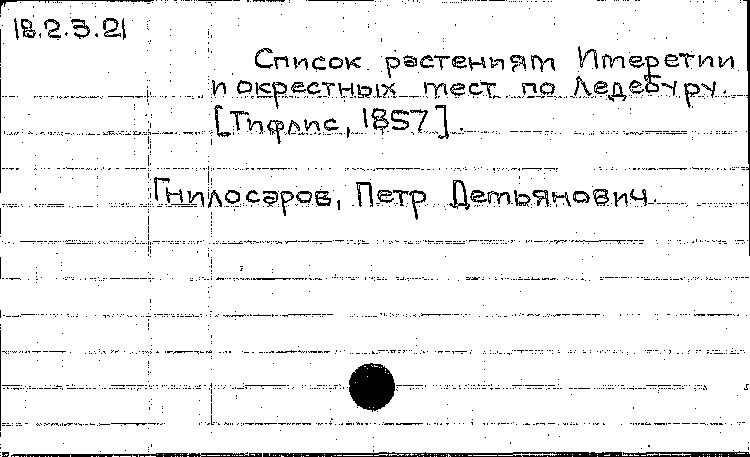 18.2.3.21
Список растениям Имеретии
и окрестных мест по Ледебуру.
[Тифлис, 1857].
Гнилосаров, Петр Демьянович.